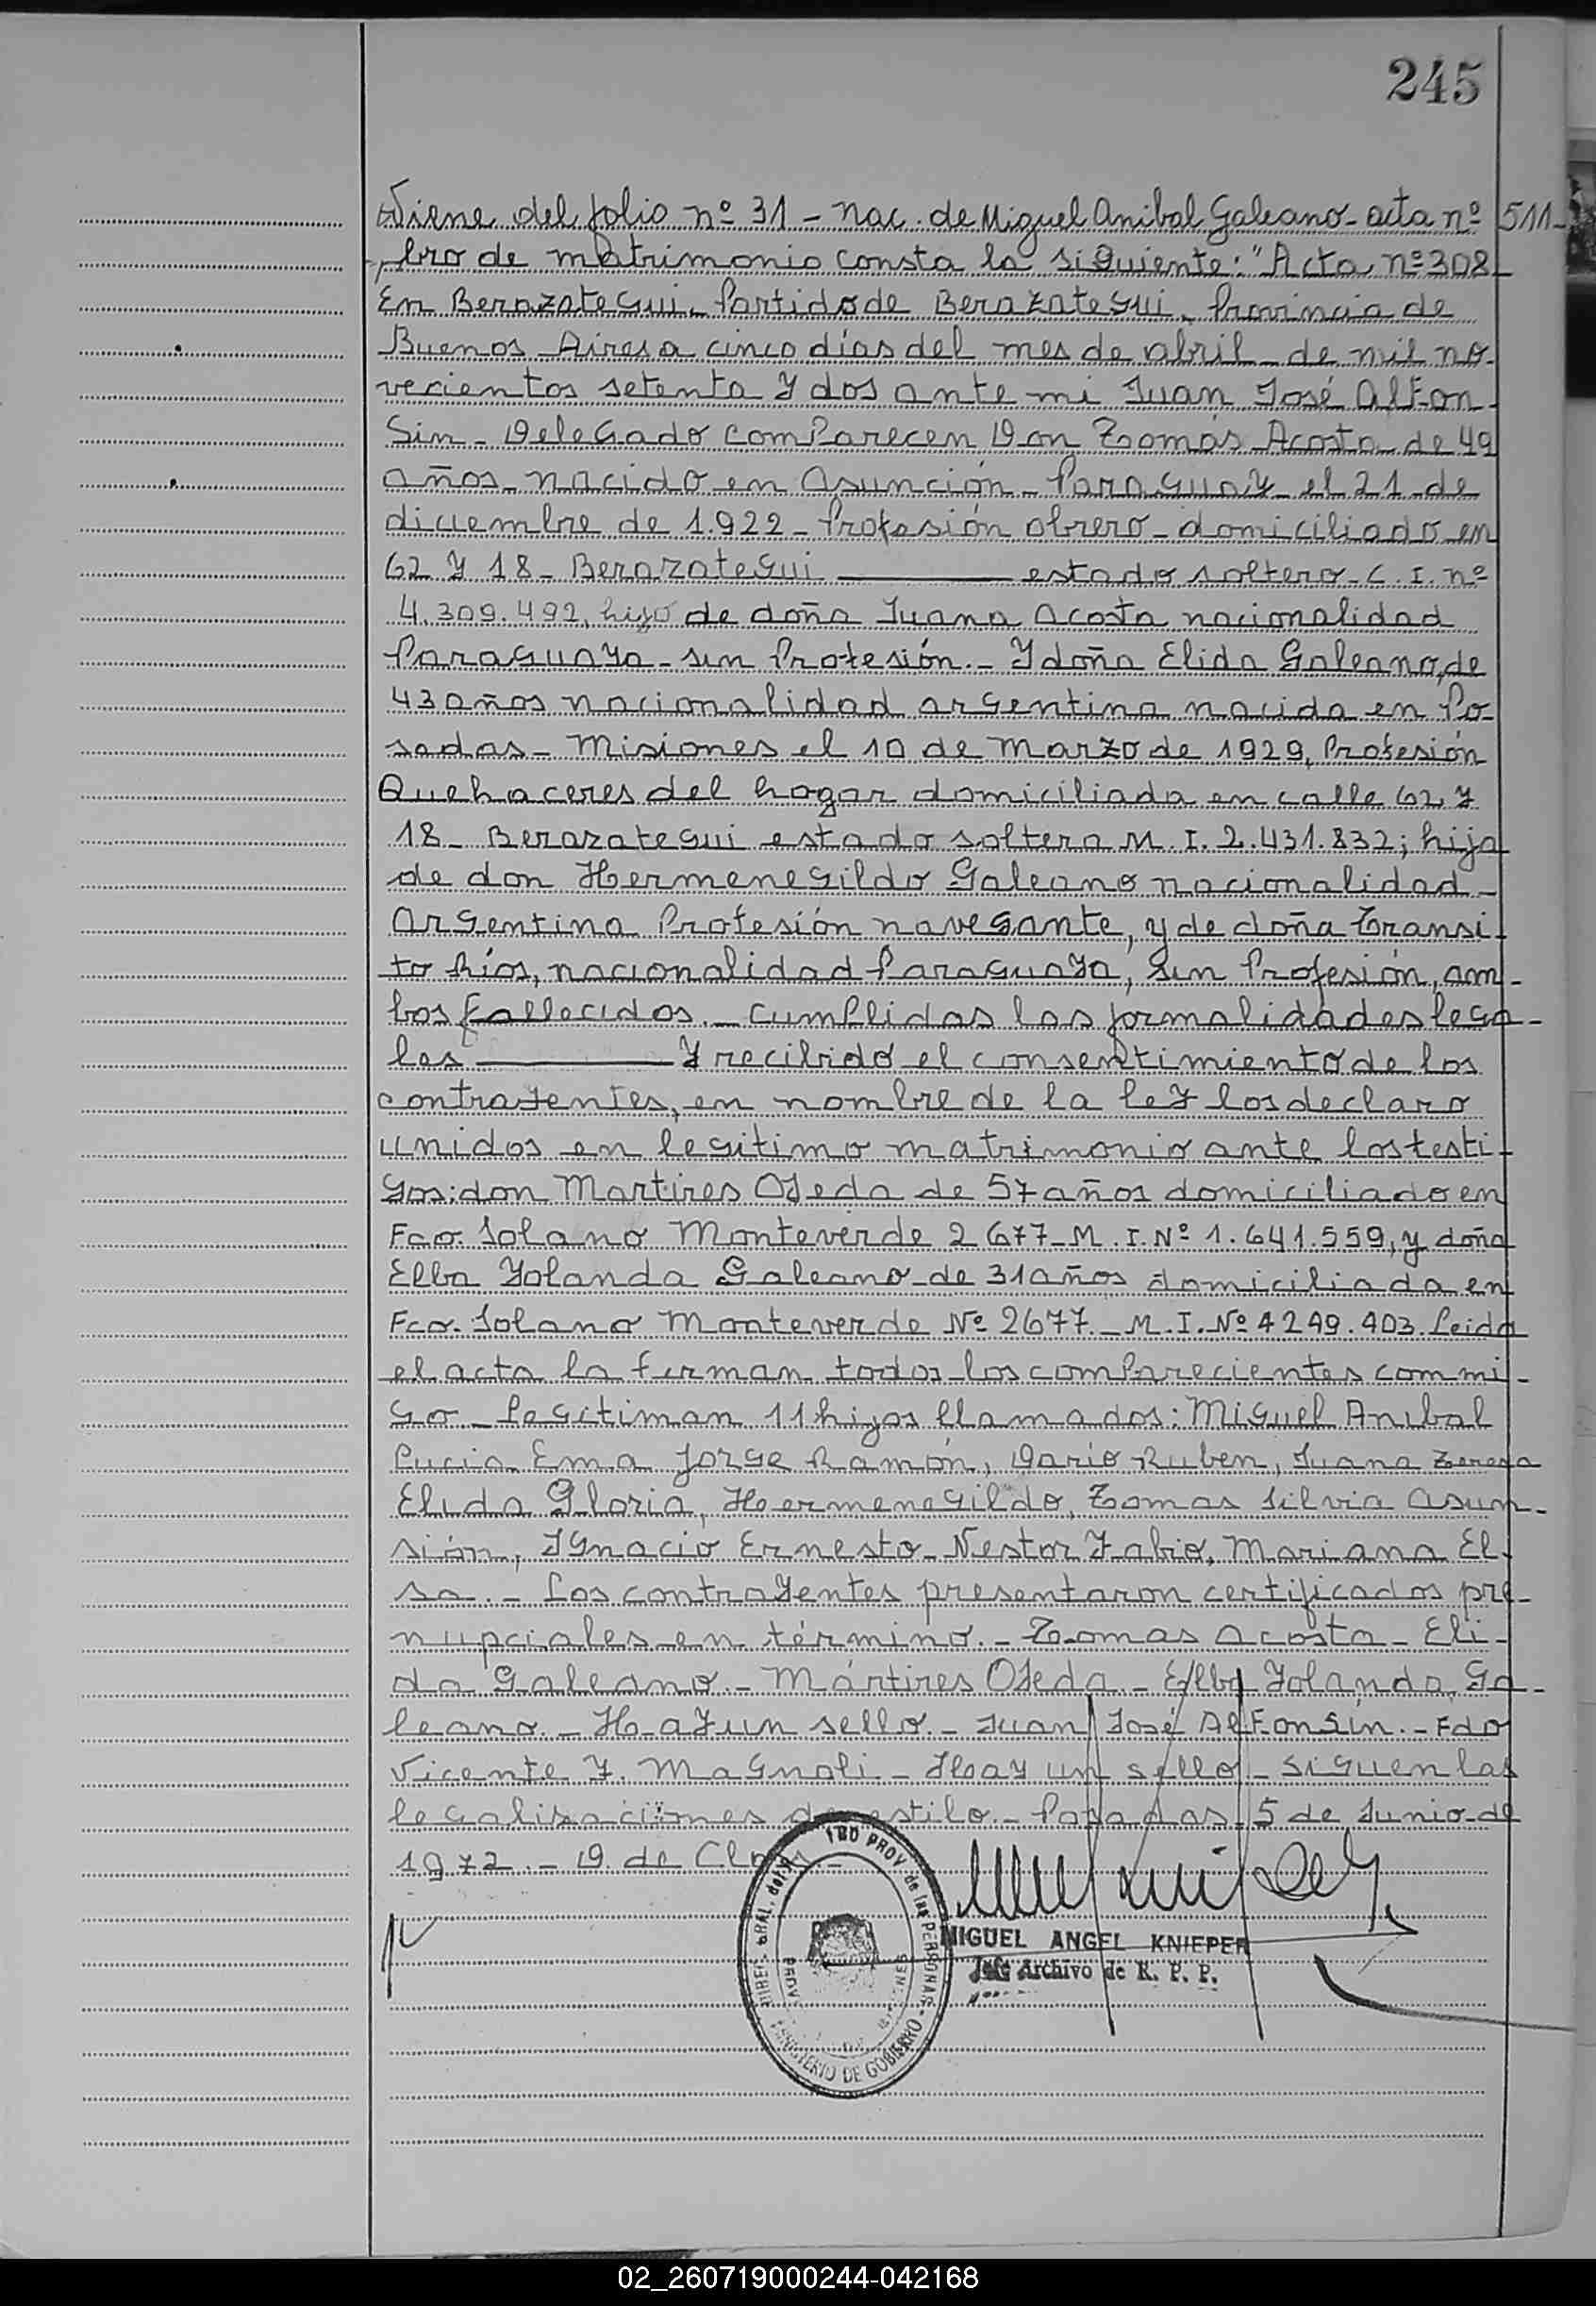 245
Viene del folio nº 31 - nac. de Miguel Anibal Galeano - acta nº 511 -
bro de matrimonio consta lo siguiente: "Acta nº 308
En Berazategui - Partido de Berazategui, Provincia de
Buenos Aires a cinco días del mes de abril de mil no-
vecientos setenta y dos ante mi Juan José Alfon-
sin - Delegado comparecen Don Tomás Acosta de 49
años nacido en Asunción - Paraguay el 21 de
diciembre de 1.922 - Profesión obrero - domiciliado en
62 y 18 - Berazategui ——— estado soltero - C. I. nº
4.309.492, hijo de doña Juana Acosta nacionalidad
Paraguaya - sin Profesión. - Y doña Elida Galeano, de
43 años nacionalidad argentina nacida en Po-
sadas - Misiones el 10 de Marzo de 1929, Profesión
Quehaceres del hogar domiciliada en calle 62 y
18 - Berazategui estado soltera M. I. 2.431.832; hija
de don Hermenegildo Galeano nacionalidad -
Argentina Profesión navegante, y de doña Transi-
to Ríos, nacionalidad Paraguaya, sin Profesión, am-
bos fallecidos. - Cumplidas las formalidades lega-
les ——— y recibido el consentimiento de los
contrayentes, en nombre de la ley los declaro
unidos en legitimo matrimonio ante los testi-
gos: don Martires Ojeda de 57 años domiciliado en
Fco. Solano Monteverde 2677 - M. I. Nº 1.641.559, y doña
Elba Yolanda Galeano - de 31 años domiciliada en
Fco. Solano Monteverde Nº 2677. - M. I. Nº 4249.403. Leida
el acta la firman todos los comparecientes conmi-
go - Legitiman 11 hijos llamados: Miguel Anibal
Lucia Ema Jorge Ramón, Dario Ruben, Juana Teresa
Elida Gloria, Hermenegildo, Tomas Silvia Asun-
sión, Ignacio Ernesto - Nestor Fabio, Mariana El-
sa. - Los contrayentes presentaron certificados pre-
nupciales en término. - Tomas Acosta - Eli-
da Galeano. - Mártires Ojeda - Elba Yolanda Ga-
leano. - Hay un sello. - Juan José Alfonsín. - Fdo
Vicente Y. Magnoli - Hay un sello - siguen las
legalizaciones de estilo. - Posadas 5 de Junio de
1972. -
MIGUEL ANGEL KNIEPER
Jefe Archivo de R. P. P.
PROV de las PERSONAS
MINISTERIO DE GOBIERNO
02_260719000244-042168